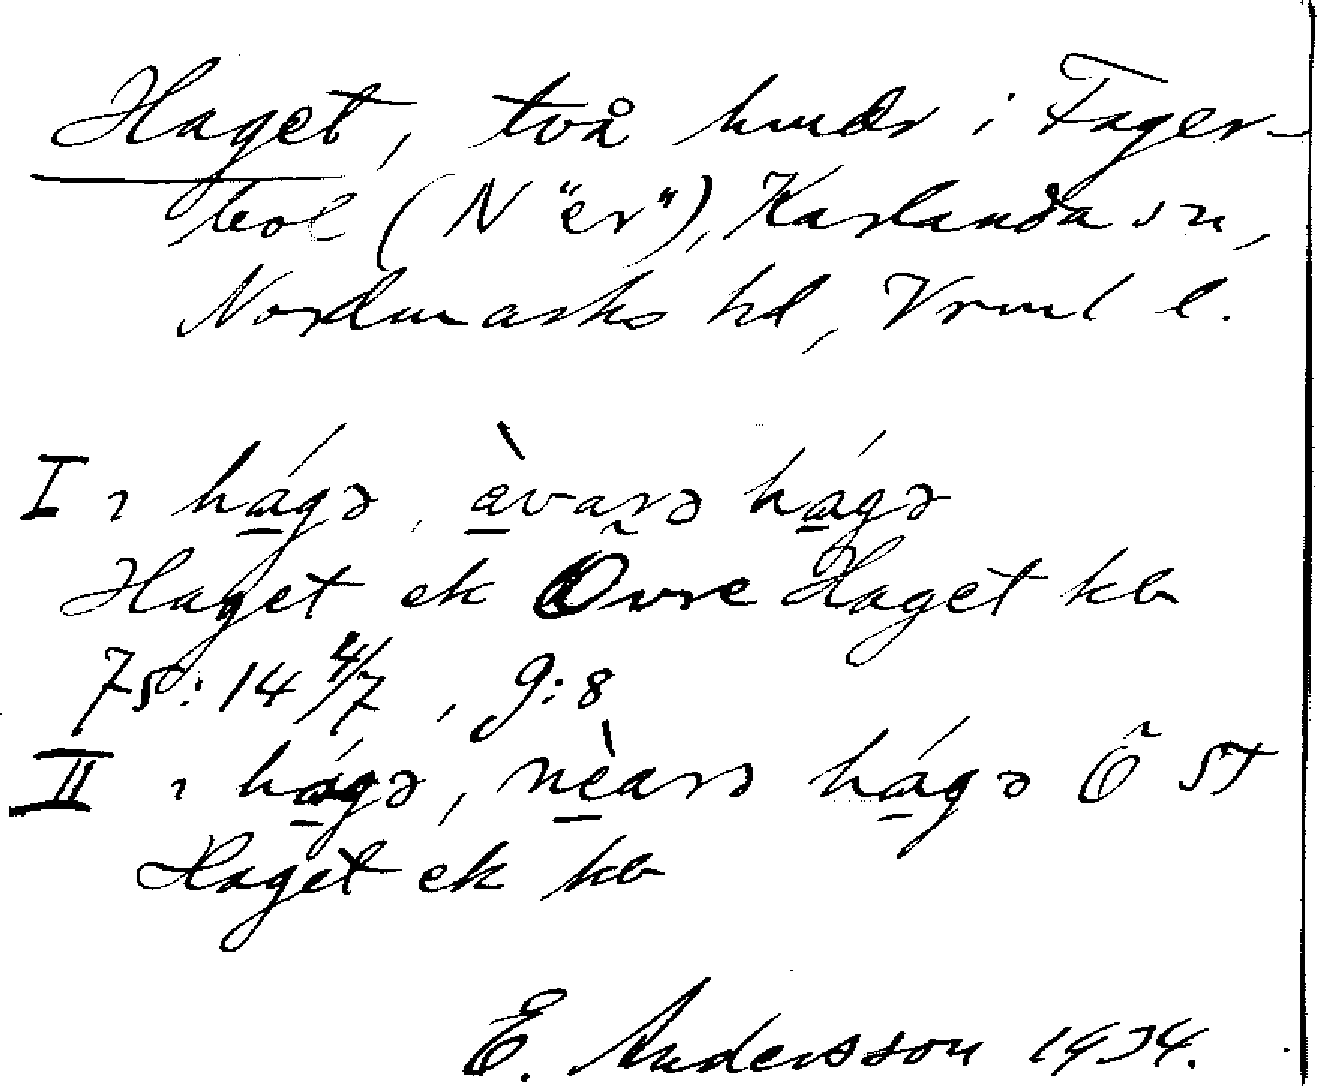 Haget, två hmdr i Fager-
bol (N "er"), Karlanda sn,
Nordmarks hd, Vrml l.
I ı há̱gə, à̱varə há̱gə
Haget ek Övre Haget kb
75:14 4/7, 9:8
II ı há̱gə, nè̱arə há̱gə Ö ST
Haget ek kb
E. Andersson 1934.